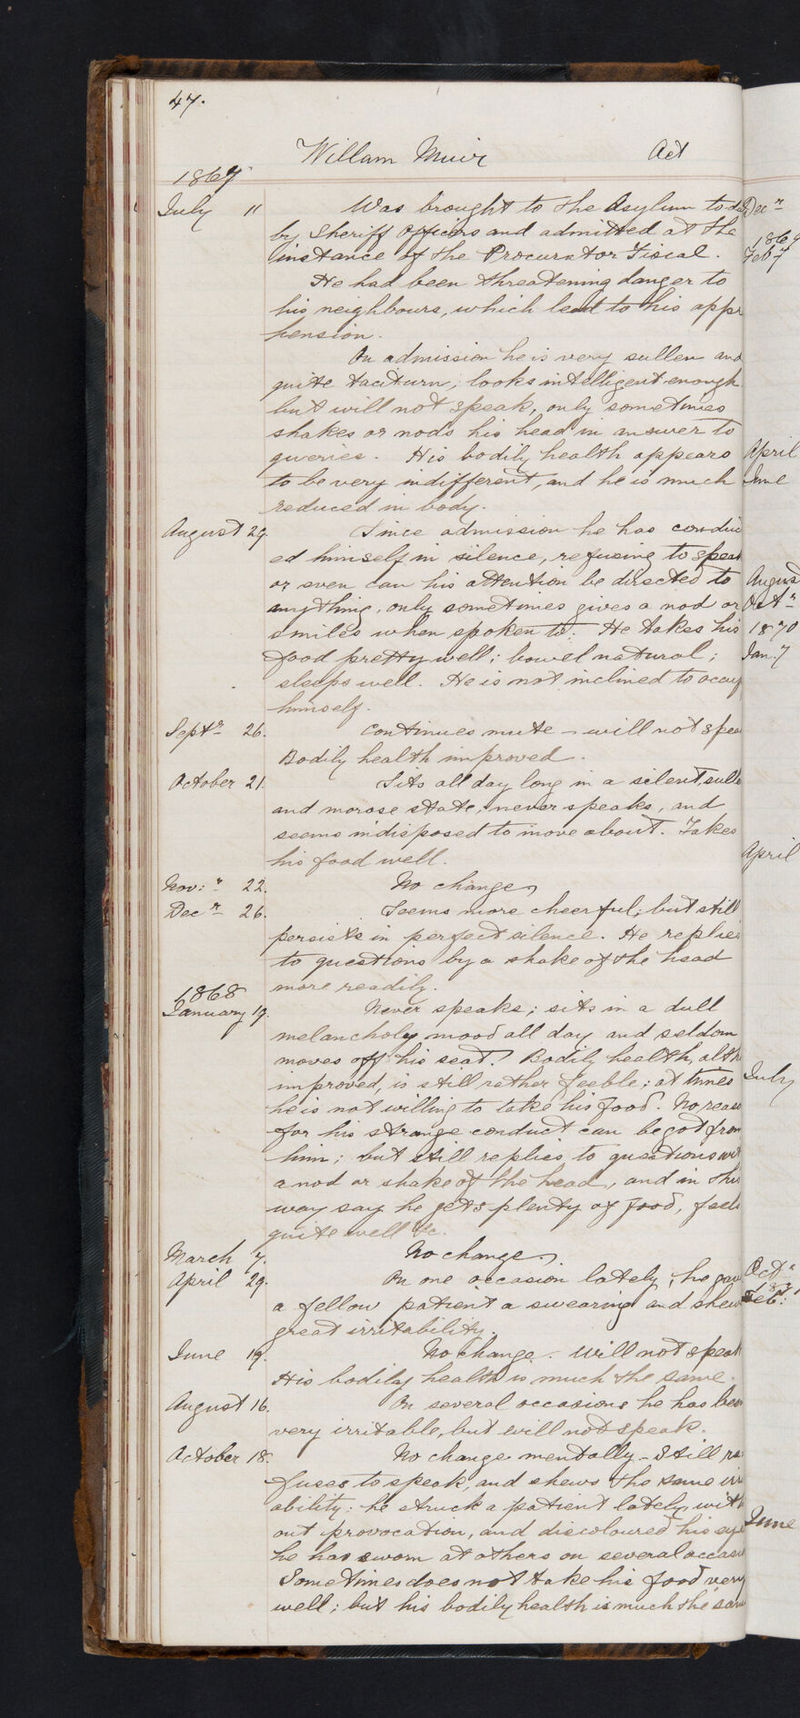 47.
William Muir Act
1867
July 11 Was brought to the Asylum toda
by Sheriff Officers and admitted at the
instance of the Procurator Fiscal.
He had been threatening danger to
his neighbours, which lead to his appr
hension.
On admission he is very sullen and
quite taciturn; looks intelligent enough
but will not speak, only sometimes
shakes or nods his head in answer to
queries. His bodily health appears
to be very indifferent, and he is much
reduced in body.
August 29. Since admission he has conduc
ed himself in silence, refusing to speak
or even can his attention be directed to
anything, only sometimes gives a nod or
smiles when spoken to. He takes his
food pretty well; bowel natural;
sleeps well. He is not inclined to occup
himself.
Septr 26. Continues mute - will not spea
Bodily health improved.
October 21. Sits all day long in a silent, sulle
and morose state, never speaks, and
seems indisposed to move about. Takes
his food well.
Nov:r 22. No change
Decr 26. Seems more cheerful; but still
persists in perfect silence. He replies
to questions by a shake of the head
more readily.
1868
January 19. Never speaks; sits in a dull
melancholy mood all day and seldom
moves off his seat. Bodily health, alth
improved, is still rather feeble; at times
he is not willing to take his food. No reaso
for his strange conduct can be got from
him; but still replies to questions wit
a nod or shake of the head, and in this
way say he gets plenty of food, feels
quite well &c.
March 7. No change
April 29. On one occasion lately, he gav
a fellow patient a swearing and shew
great irritability.
June 19. No change. Will not speak
His bodily health is much the same.
August 16. On several occasions he has been
very irritable, but will not speak.
October 18. No change mentally - Still re
fuses to speak, and shews the same irr
ability; he struck a patient lately with
out provocation, and discoloured his eye
he has sworn at others on several occasi
Sometimes does not take his food very
well; but his bodily health is much the sam
Decr
1869
Feby
April
June
August
Octr
1870
Jany
April
July
Octr
1871
Feby:
June